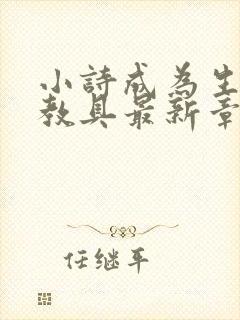 小詩成為生
教具最新章
任继平